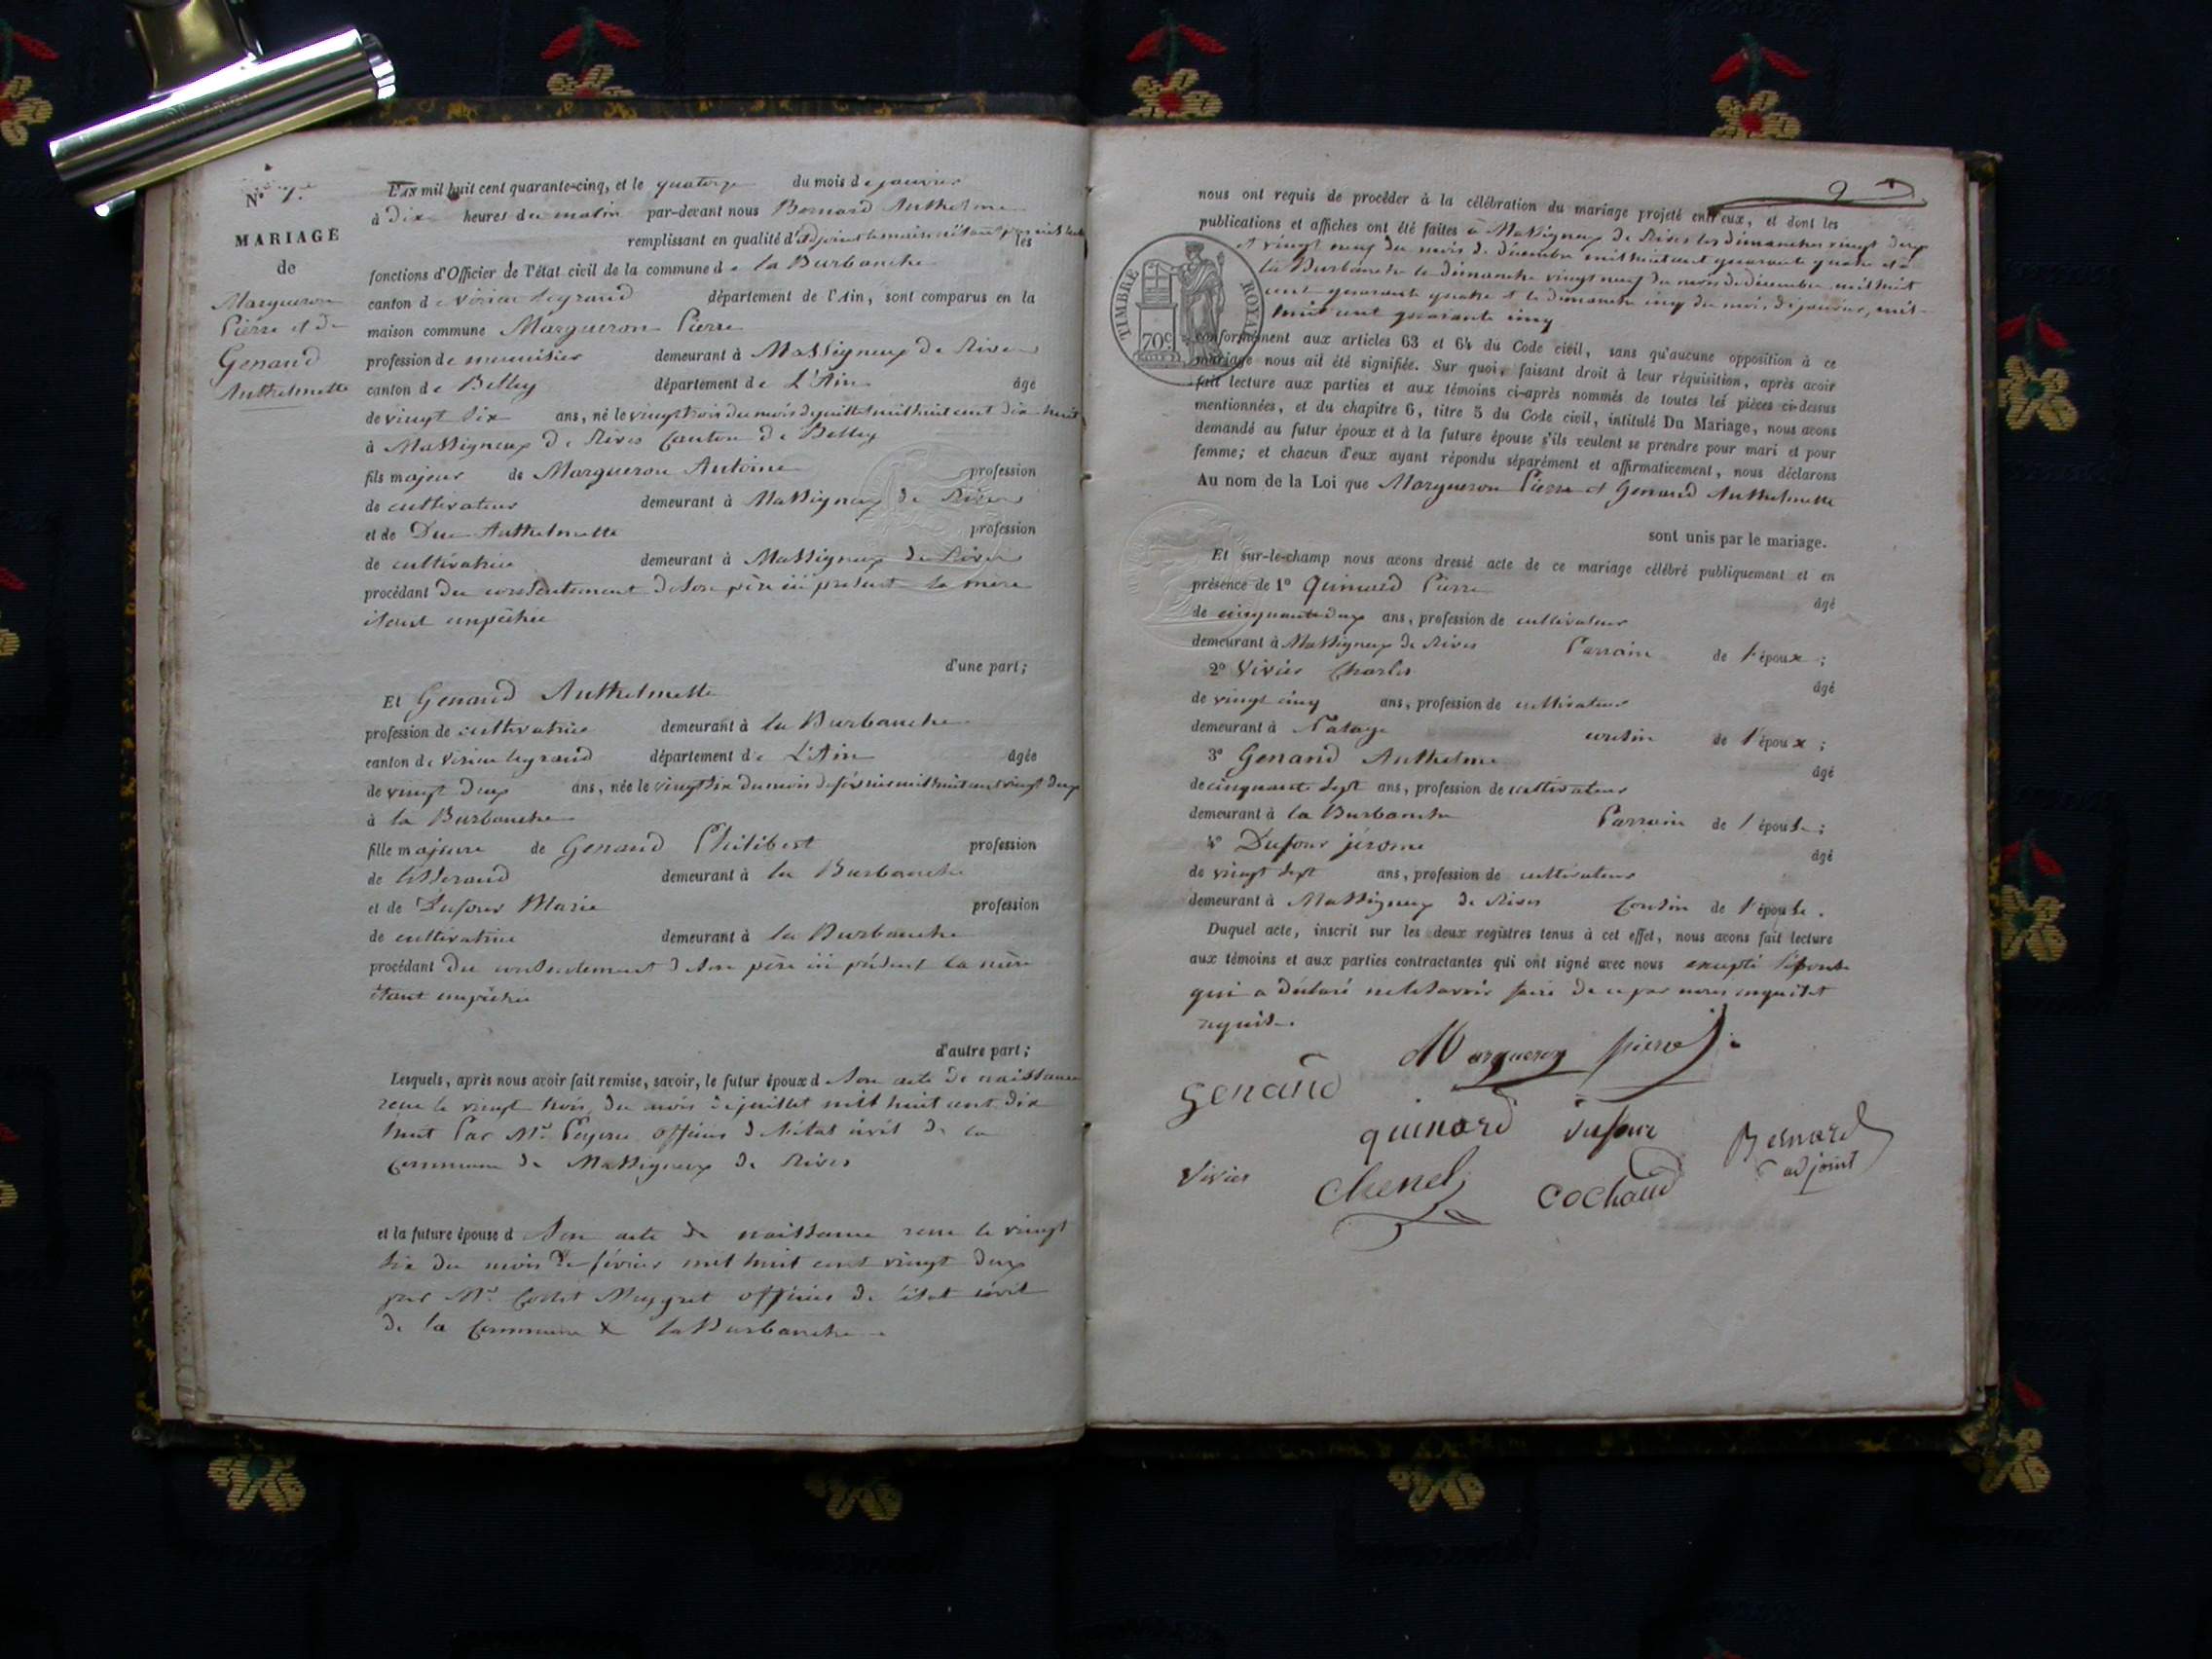 N° 1.
MARIAGE
de
Margueron
Pierre et de
Genand
Anthelmette
L'an mil huit cent quarante-cinq, et le quatorze du mois de janvier
à Dix heures du matin par-devant nous Bernard Anthelme
remplissant en qualité d'adjoint le maire n'étant pas les
fonctions d'Officier de l'état civil de la commune de la Burbanche
canton de Virieu legrand département de l'Ain, sont comparus en la
maison commune Margueron Pierre
profession de menuisier demeurant à Massigneux de Rives
canton de Belley département de L'Ain âgé
de vingt six ans, né le vingt trois du mois de juillet mil huit cent dix huit
à Massigneux de Rives Canton de Belley
fils majeur de Margueron Antoine profession
de cultivateur demeurant à Massigneux de Rives
et de Duc Anthelmette profession
de cultivatrice demeurant à Massigneux de Rives
procédant du consentement de son père ici présent la mère
étant empêchée
d'une part;
Et Genand Anthelmette
profession de cultivatrice demeurant à la Burbanche
canton de Virieu legrand département de L'Ain âgée
de vingt deux ans, née le vingt six du mois de février mil huit cent vingt deux
à la Burbanche
fille majeure de Genand Philibert profession
de tisserand demeurant à la Burbanche
et de Dufour Marie profession
de cultivatrice demeurant à la Burbanche
procédant du consentement de son père ici présent la mère
étant empêchée
d'autre part;
Lesquels, après nous avoir fait remise, savoir, le futur époux d Son acte de naissance
reçu le vingt trois du mois de juillet mil huit cent dix
huit Par Mr. officier de l'état civil de la
Commune de Massigneux de Rives
et la future épouse d Son acte de naissance reçu le vingt
six du mois de février mil huit cent vingt deux
par Mr. officier de l'état civil
de la Commune de la Burbanche
9
nous ont requis de procéder à la célébration du mariage projeté entr'eux, et dont les
publications et affiches ont été faites à Massigneux de Rives les dimanches vingt deux
et vingt neuf du mois de décembre mil huit cent quarante quatre et à
la Burbanche le dimanche vingt neuf du mois de décembre mil huit
cent quarante quatre et le dimanche cinq du mois de janvier, mil
huit cent quarante cinq
TIMBRE ROYAL
70c
conformément aux articles 63 et 64 du Code civil, sans qu'aucune opposition à ce
mariage nous ait été signifiée. Sur quoi, faisant droit à leur réquisition, après avoir
fait lecture aux parties et aux témoins ci-après nommés de toutes les pièces ci-dessus
mentionnées, et du chapitre 6, titre 5 du Code civil, intitulé Du Mariage, nous avons
demandé au futur époux et à la future épouse s'ils veulent se prendre pour mari et pour
femme; et chacun d'eux ayant répondu séparément et affirmativement, nous déclarons
Au nom de la Loi que Margueron Pierre et Genand Anthelmette
sont unis par le mariage.
Et sur-le-champ nous avons dressé acte de ce mariage célébré publiquement et en
présence de 1° Quinard Pierre âgé
de cinquante deux ans, profession de cultivateur
demeurant à Massigneux de Rives Parrain de l'époux;
2° Vivier Charles âgé
de vingt cinq ans, profession de cultivateur
demeurant à cousin de l'époux;
3° Genand Anthelme âgé
de cinquante sept ans, profession de cultivateur
demeurant à la Burbanche Parrain de l'épouse;
4° Dufour jérome âgé
de vingt sept ans, profession de cultivateur
demeurant à Massigneux de Rives Cousin de l'épouse.
Duquel acte, inscrit sur les deux registres tenus à cet effet, nous avons fait lecture
aux témoins et aux parties contractantes qui ont signé avec nous excepté l'épouse
qui a déclaré ne le savoir faire de ce par nous enquise et
requise.
Margueron pierre
Genand
quinard dufour Bernard
adjoint
Vivier Chenel cochaud